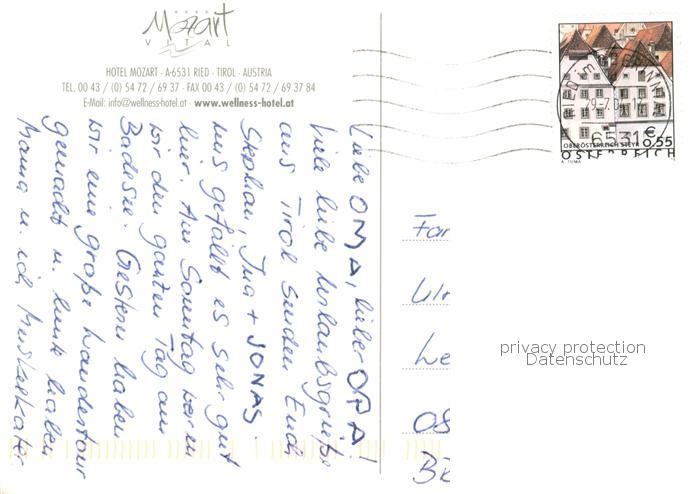 Mozart
VITAL
HOTEL MOZART · A-6531 RIED · TIROL · AUSTRIA
TEL. 00 43 / (0) 54 72 / 69 37 · FAX 00 43 / (0) 54 72 / 69 37 84
E-Mail: info@wellness-hotel.at · www.wellness-hotel.at
Liebe OMA, lieber OPA!
Viele liebe Urlaubsgrüße
aus Tirol senden Euch
Stephan, Ina + JONAS.
Uns gefällt es sehr gut
hier. Am Sonntag waren
wir den ganzen Tag am
Badesee. Gestern haben
wir eine große Wandertour
gemacht u. heute haben
Mama u. ich Muskelkater
6531
€ 0,55
OBERÖSTERREICH STEYR
ÖSTERREICH
A. TUMA
privacy protection
Datenschutz